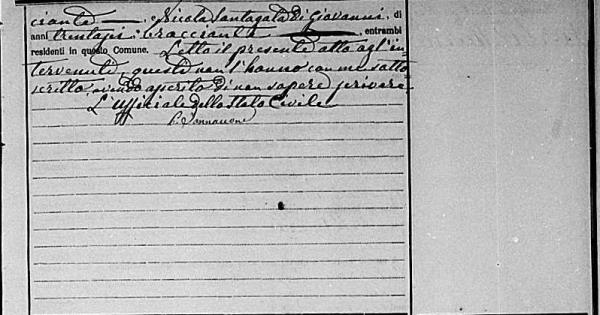 ciante —, Nicola Santagata di Giovanni, di
anni trentasei: bracciante —, entrambi
residenti in questo Comune. Letto il presente atto agl'in
tervenuti, questi non l'hanno con me sotto
scritto, avendo asserito di non sapere scrivere.
L'Uffiziale dello Stato Civile